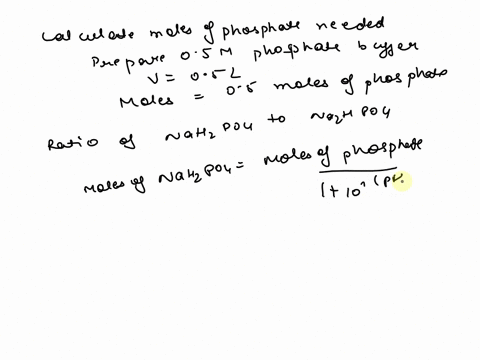 Calculate moles of phosphate needed
Prepare 0.5 M phosphate buffer
V = 0.5 L
Moles = 0.5 moles of phosphate
Ratio of NaH2PO4 to Na2HPO4
Moles of NaH2PO4 = moles of phosphate
1 + 10^(pK